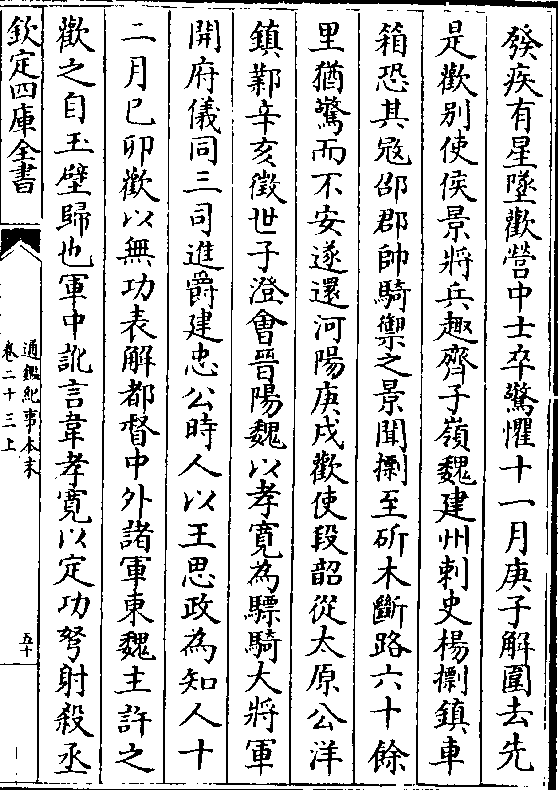 發疾有星墜歡營中士卒驚懼十一月庚子解圍去先
是歡别使侯景將兵趣齊子嶺魏建州刺史楊㯹鎮車
箱恐其寇邵郡帥騎禦之景聞㯹至斫木斷路六十餘
里猶驚而不安遂還河陽庚戌歡使段韶從太原公洋
鎮鄴辛亥徵世子澄會晉陽魏以孝寛為驃騎大將軍
開府儀同三司進爵建忠公時人以王思政為知人十
二月己卯歡以無功表解都督中外諸軍東魏主許之
歡之自玉壁歸也軍中訛言韋孝寛以定功弩射殺丞
欽定四庫全書
通鑑紀事本末
卷二十三上
五十